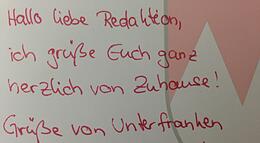 Hallo liebe Redaktion,
ich grüße Euch ganz
herzlich von Zuhause!
Grüße von Unterfranken